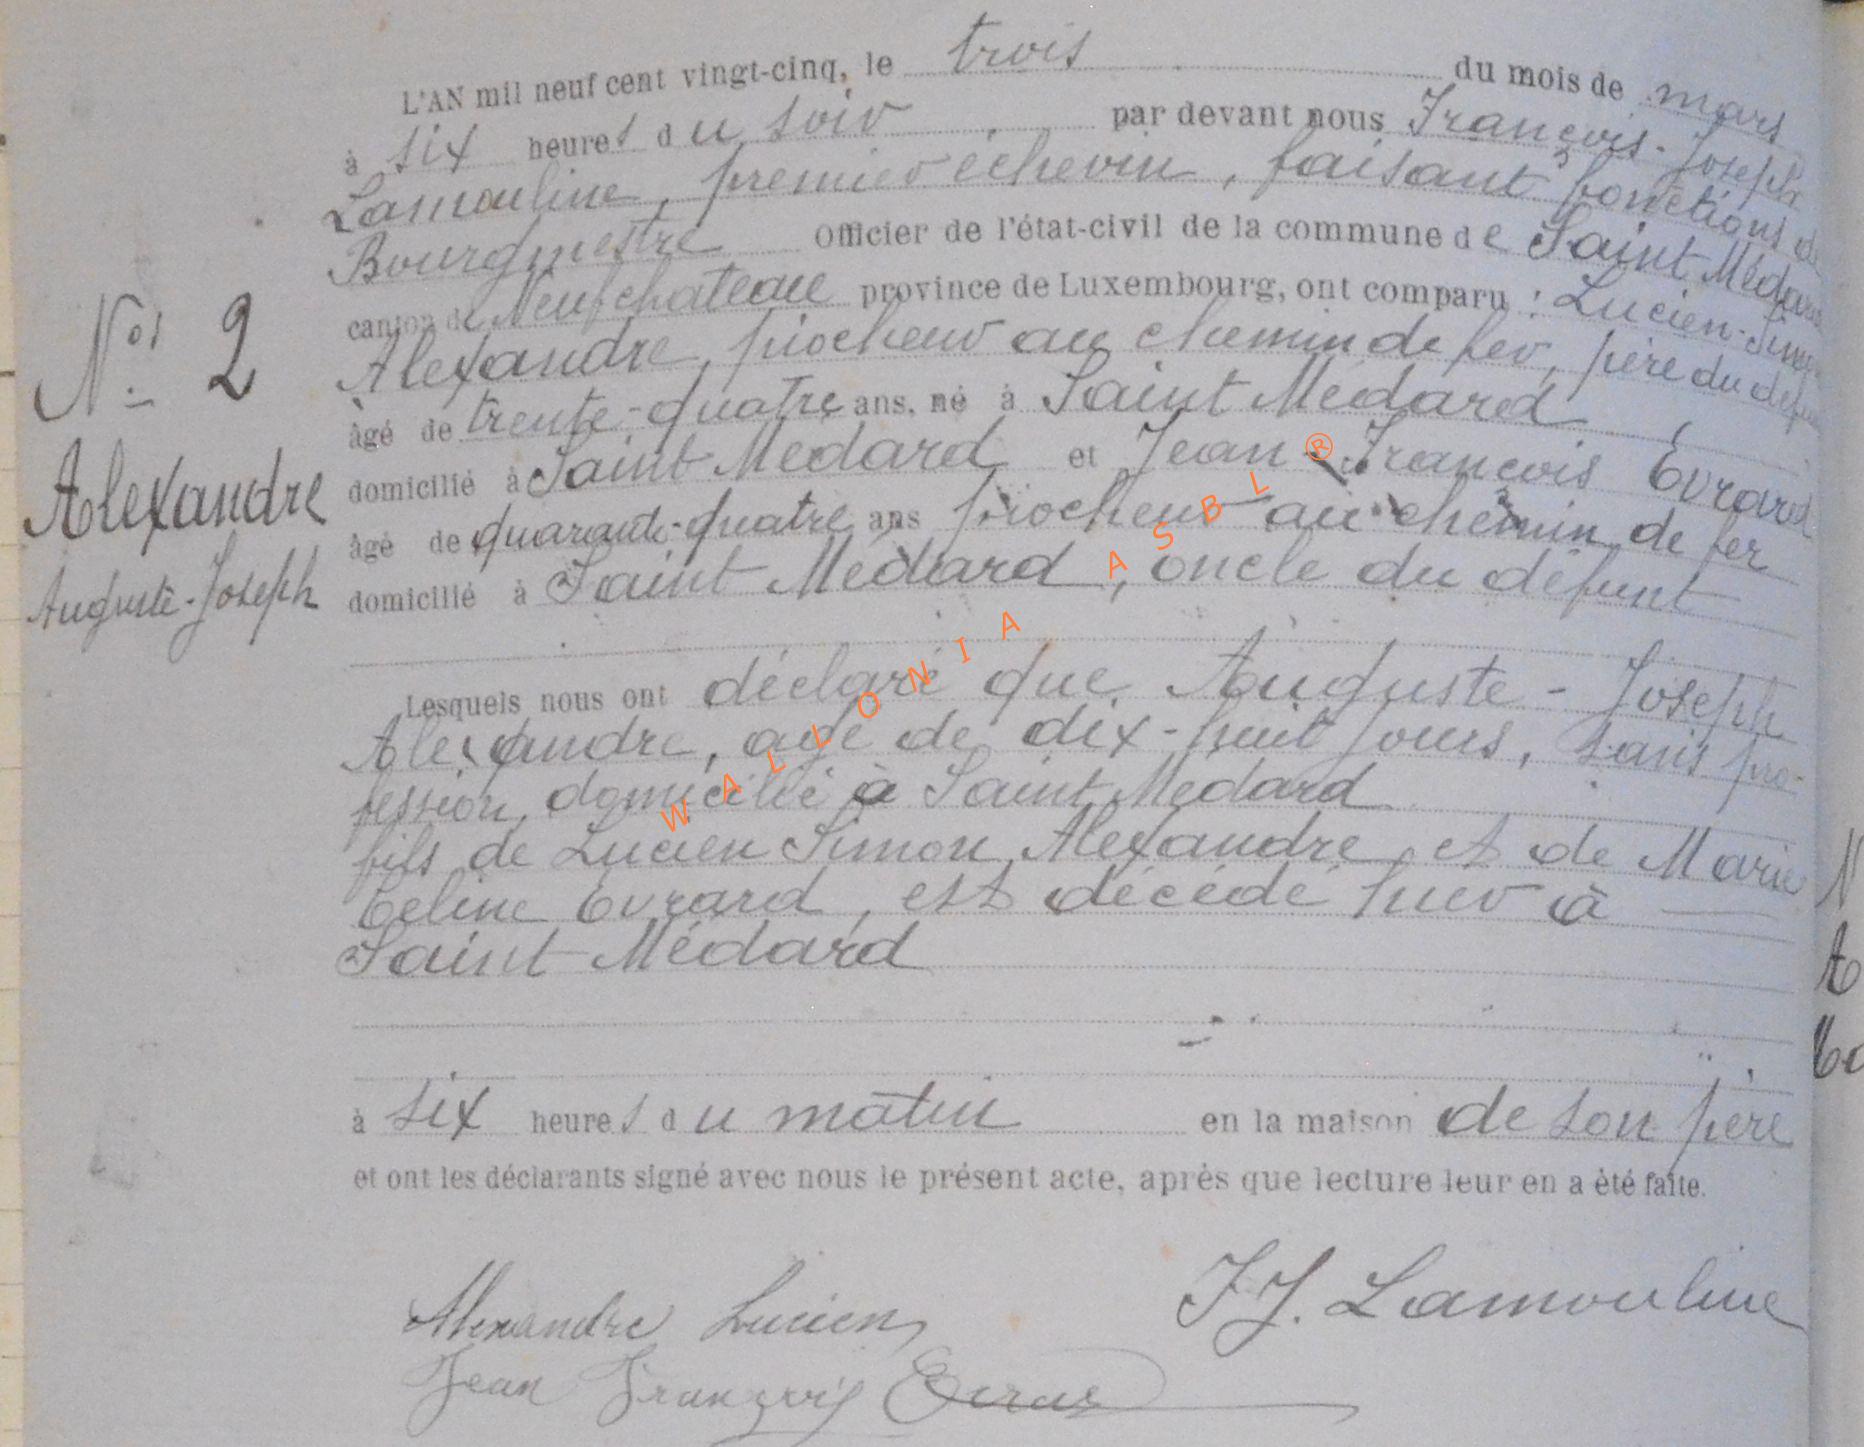 L'AN mil neuf cent vingt-cinq, le trois du mois de mars
à six heures du soir par devant nous François-Joseph
Lamouline, premier échevin, faisant fonctions de
Bourgmestre Officier de l'état-civil de la commune de Saint Médard
canton de Neufchateau province de Luxembourg, ont comparu : Lucien-Simon
Alexandre, piocheur au chemin de fer, père du défunt
âgé de trente-quatre ans, né à Saint Médard,
domicilié à Saint Médard et Jean François Evrard
âgé de quarante-quatre ans piocheur au chemin de fer
domicilié à Saint Médard, oncle du défunt
Nos 2
Alexandre
Auguste-Joseph
Lesquels nous ont déclaré que Auguste-Joseph
Alexandre, agé de dix-huit jours, sans pro-
fession, domicilié à Saint Médard
fils de Lucien Simon Alexandre, et de Marie
Celine Evrard, est décédé hier à
Saint Médard
à six heures du matin en la maison de son père
et ont les déclarants signé avec nous le présent acte, après que lecture leur en a été faite.
Alexandre Lucien
F J. Lamouline
Jean François Evrard
WALLONIA ASBL ®